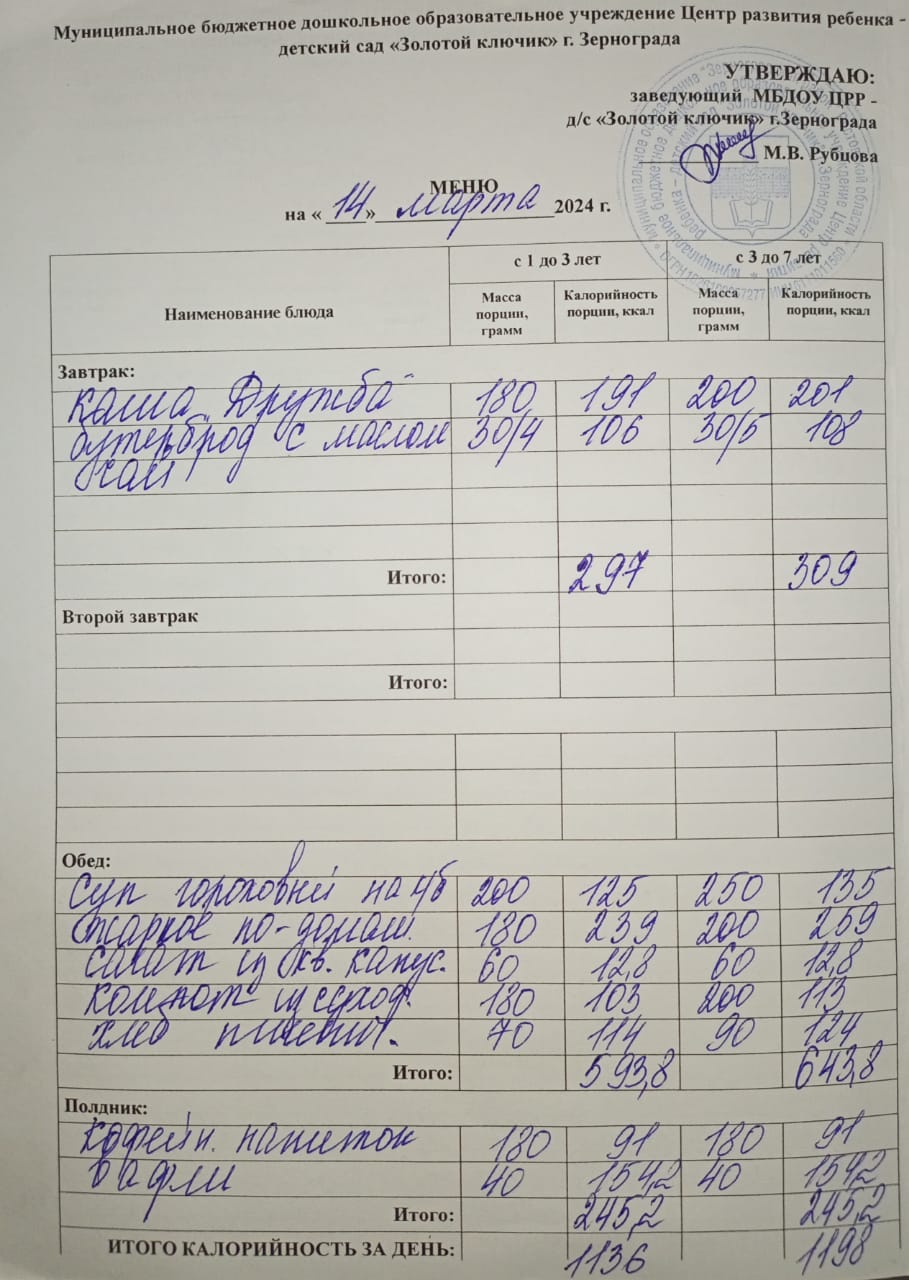 Муниципальное бюджетное дошкольное образовательное учреждение Центр развития ребенка -
детский сад «Золотой ключик» г. Зернограда
УТВЕРЖДАЮ:
заведующий МБДОУ ЦРР -
д/с «Золотой ключик» г.Зернограда
М.В. Рубцова
МЕНЮ
на « 14 » марта 2024 г.
Наименование блюда с 1 до 3 лет с 3 до 7 лет
Масса порции, грамм Калорийность порции, ккал Масса порции, грамм Калорийность порции, ккал
Завтрак:
Каша "Дружба" 180 191 200 201
бутерброд с маслом 30/4 106 30/5 108
чай
Итого: 297 309
Второй завтрак
Итого:
Обед:
Суп гороховый на м/б 200 125 250 135
Жаркое по-домаш. 180 239 200 259
Салат из кв. капус. 60 12,8 60 12,8
Компот из сухоф. 180 103 200 113
Хлеб пшенич. 70 114 90 124
Итого: 593,8 643,8
Полдник:
Кофейн. напиток 180 91 180 91
Вафли 40 154,2 40 154,2
Итого: 245,2 245,2
ИТОГО КАЛОРИЙНОСТЬ ЗА ДЕНЬ: 1136 1198